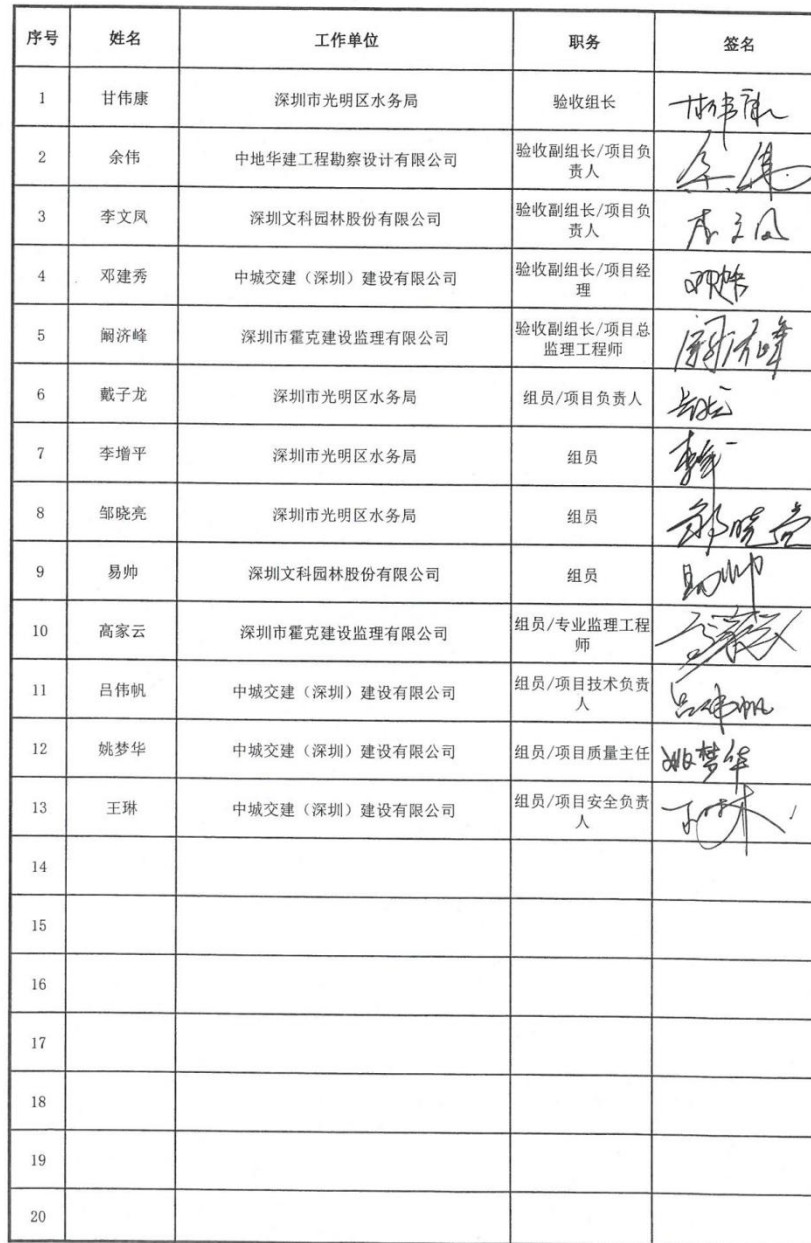 序号 姓名 工作单位 职务 签名
1 甘伟康 深圳市光明区水务局 验收组长 甘伟康
2 余伟 中地华建工程勘察设计有限公司 验收副组长/项目负
责人 余伟
3 李文凤 深圳文科园林股份有限公司 验收副组长/项目负
责人 李文凤
4 邓建秀 中城交建（深圳）建设有限公司 验收副组长/项目经
理
5 阚济峰 深圳市霍克建设监理有限公司 验收副组长/项目总
监理工程师 阚济峰
6 戴子龙 深圳市光明区水务局 组员/项目负责人
7 李增平 深圳市光明区水务局 组员
8 邹晓亮 深圳市光明区水务局 组员 邹晓亮
9 易帅 深圳文科园林股份有限公司 组员 易帅
10 高家云 深圳市霍克建设监理有限公司 组员/专业监理工程
师 高家云
11 吕伟帆 中城交建（深圳）建设有限公司 组员/项目技术负责
人 吕伟帆
12 姚梦华 中城交建（深圳）建设有限公司 组员/项目质量主任 姚梦华
13 王琳 中城交建（深圳）建设有限公司 组员/项目安全负责
人 王琳
14
15
16
17
18
19
20